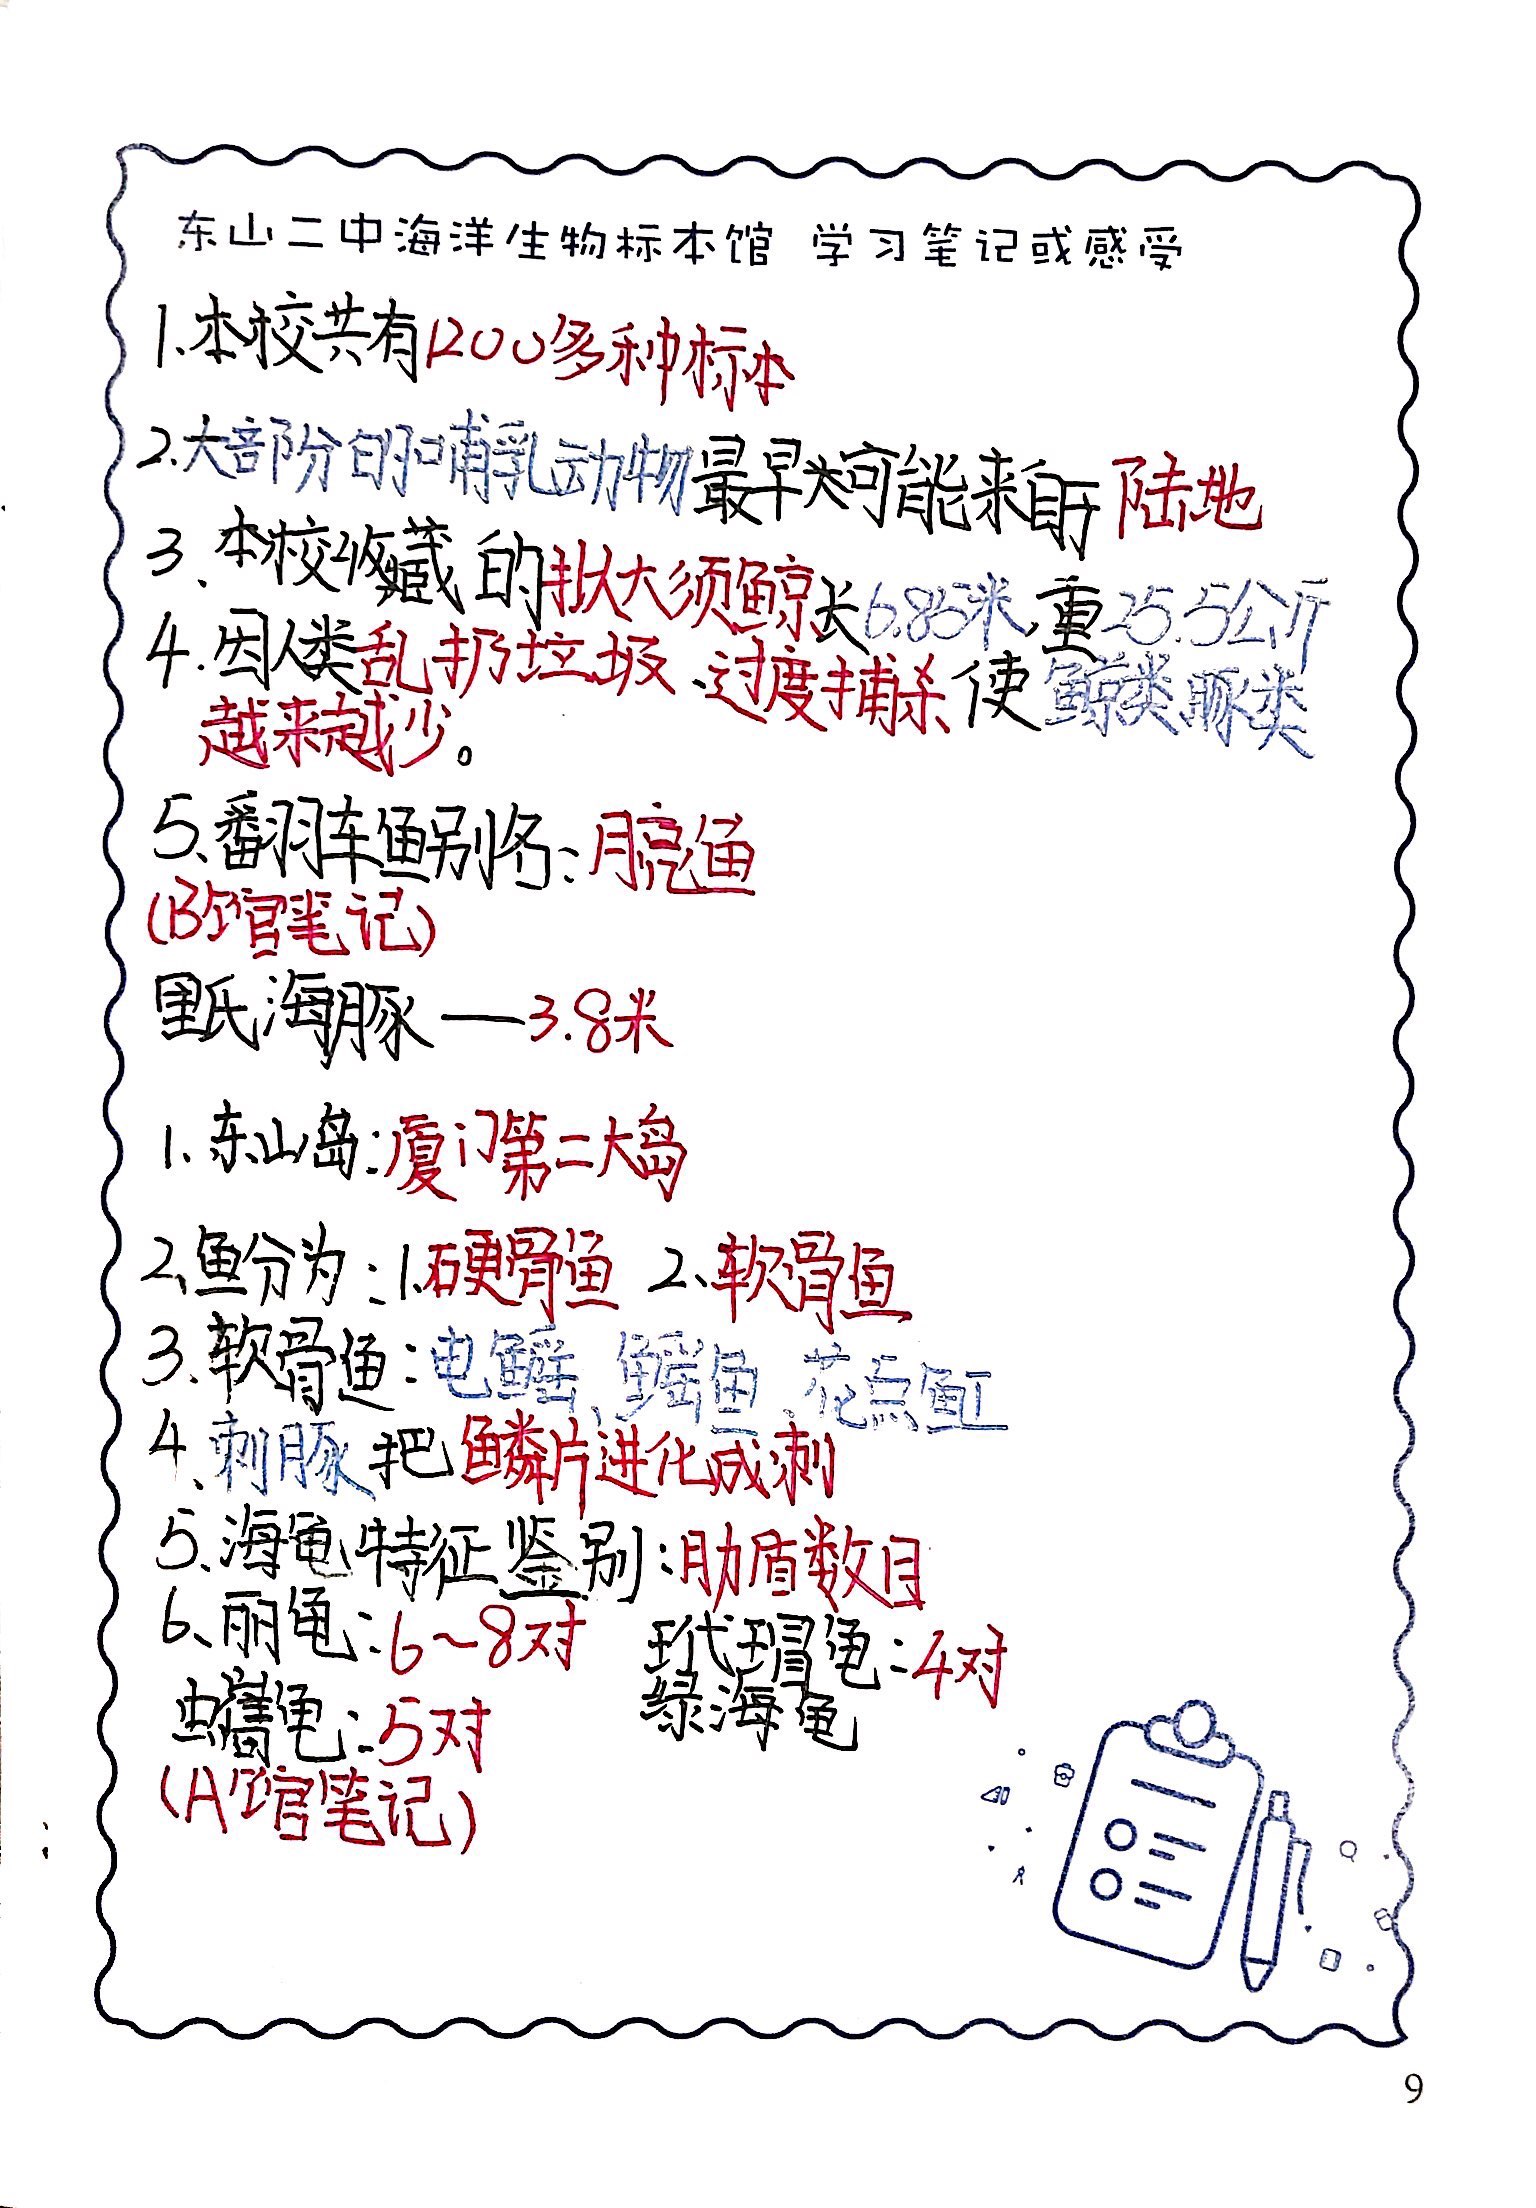 东山二中海洋生物标本馆 学习笔记或感受
1.本校共有1200多种标本
2.大部分的哺乳动物最早大可能来自于陆地
3、本校收藏的拟大须鲸长6.85米,重25.5公斤
4.因人类乱扔垃圾、过度捕杀使鲸类、豚类
越来越少。
5、翻车鱼别名:月亮鱼
(B馆笔记)
里氏海豚——3.8米
1.东山岛:厦门第二大岛
2、鱼分为:1.硬骨鱼 2、软骨鱼
3、软骨鱼:电鳐、鳐鱼、花点魟
4、刺豚把鳞片进化成刺
5、海龟特征鉴别:肋盾数目
6、丽龟:6~8对 玳瑁龟:4对
绿海龟
蠵龟:5对
(A馆笔记)
9